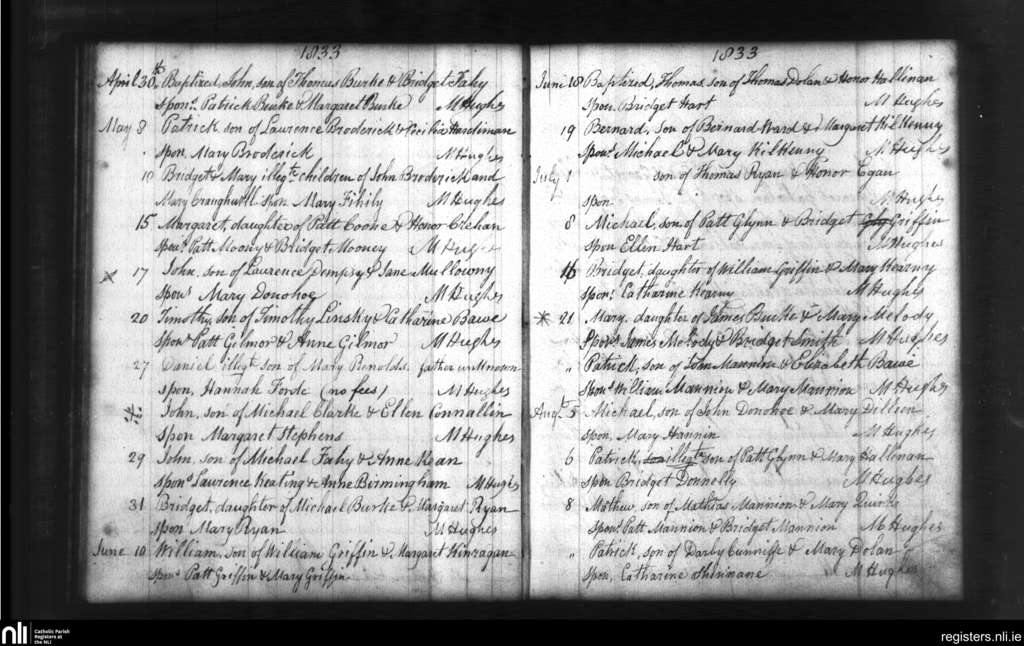 1833
April 30th Baptized, John, son of Thomas Burke & Bridget Fahy
Spons. Patrick Burke & Margaret Burke M Hughes
May 8 Patrick, son of Laurence Broderick & Hardiman
Spon. Mary Broderick M Hughes
10 Bridget & Mary illegte. children of John Broderick and
Mary Craughwell Spon. Mary Fihily M Hughes
15 Margaret, daughter of Patt Cooke & Honor Crehan
Spons. Patt Moony & Bridget Mooney M Hughes
17 John, son of Laurence Dempsy & Jane Mullowny
Spons. Mary Donohoe M Hughes
20 Timothy son of Timothy Linsky & Catharine Bawe
Spons. Patt Gilmor & Anne Gilmor M Hughes
27 Daniel illegte. son of Mary Renolds, father unknown
Spon, Hannah Forde (no fees) M Hughes
John, son of Michael Clarke & Ellen Connallin
Spon Margaret Stephens M Hughes
29 John, son of Michael Fahy & Anne Kean
Spons. Laurence Keating & Anne Birmingham M Hughes
31 Bridget, daughter of Michael Burke & Margaret Ryan
Spon Mary Ryan M Hughes
June 10 William, son of William Griffin & Margaret
Spons. Patt Griffin & Mary Griffin
1833
June 18 Baptized, Thomas, son of Thomas Dolan & Honor Hallinan
Spon. Bridget Hart M Hughes
19 Bernard, son of Bernard Ward & Margaret KilKenny
Spons. Michael & Mary KilKenny M Hughes
July 1 son of Thomas Ryan & Honor Egan
Spon M Hughes
8 Michael, son of Patt Glynn & Bridget Griffin
Spon Ellin Hart M Hughes
16 Bridget, daughter of William Griffin & Mary Hearny
Spons. Catharine Hearny M Hughes
21 Mary, daughter of James Burke & Mary Melody
Spons. James Melody & Bridget Smith M Hughes
" Patrick, son of Tom Mannion & Elizabeth Bawe
Spons. William Mannion & Mary Mannion M Hughes
Augt. 5 Michael, son of John Donohoe & Mary Dilleen
Spon, Mary Hannin M Hughes
6 Patrick, son illegte. son of Patt Glynn & Mary Hallinan
Spon Bridget Donnelly M Hughes
8 Mathew, son of Mathias Mannion & Mary Quirke
Spons. Patt Mannion & Bridget Mannion M Hughes
" Patrick, son of Darby Cunniffe & Mary Dolan
Spon, Catharine M Hughes
nli
Catholic Parish
Registers at
the NLI
registers.nli.ie